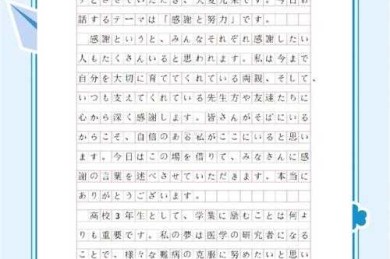 話するテーマは「感謝と努力」です。
感謝というと、みんなそれぞれ感謝したい
人もたくさんいると思われます。私は今まで
自分を大切に育ててくれている両親、そして、
いつも支えてくれている先生方や友達たちに
心から深く感謝します。皆さんがそばにいる
からこそ、自信のある私がここにいると思い
ます。今日はこの場を借りて、みなさんに感
謝の言葉を述べさせていただきます。本当に
ありがとうございます。
高校3年生として、学業に励むことは何よ
りも重要です。私の夢は医学の研究者になる
ことで、様々な難病の克服に努めたいと思い